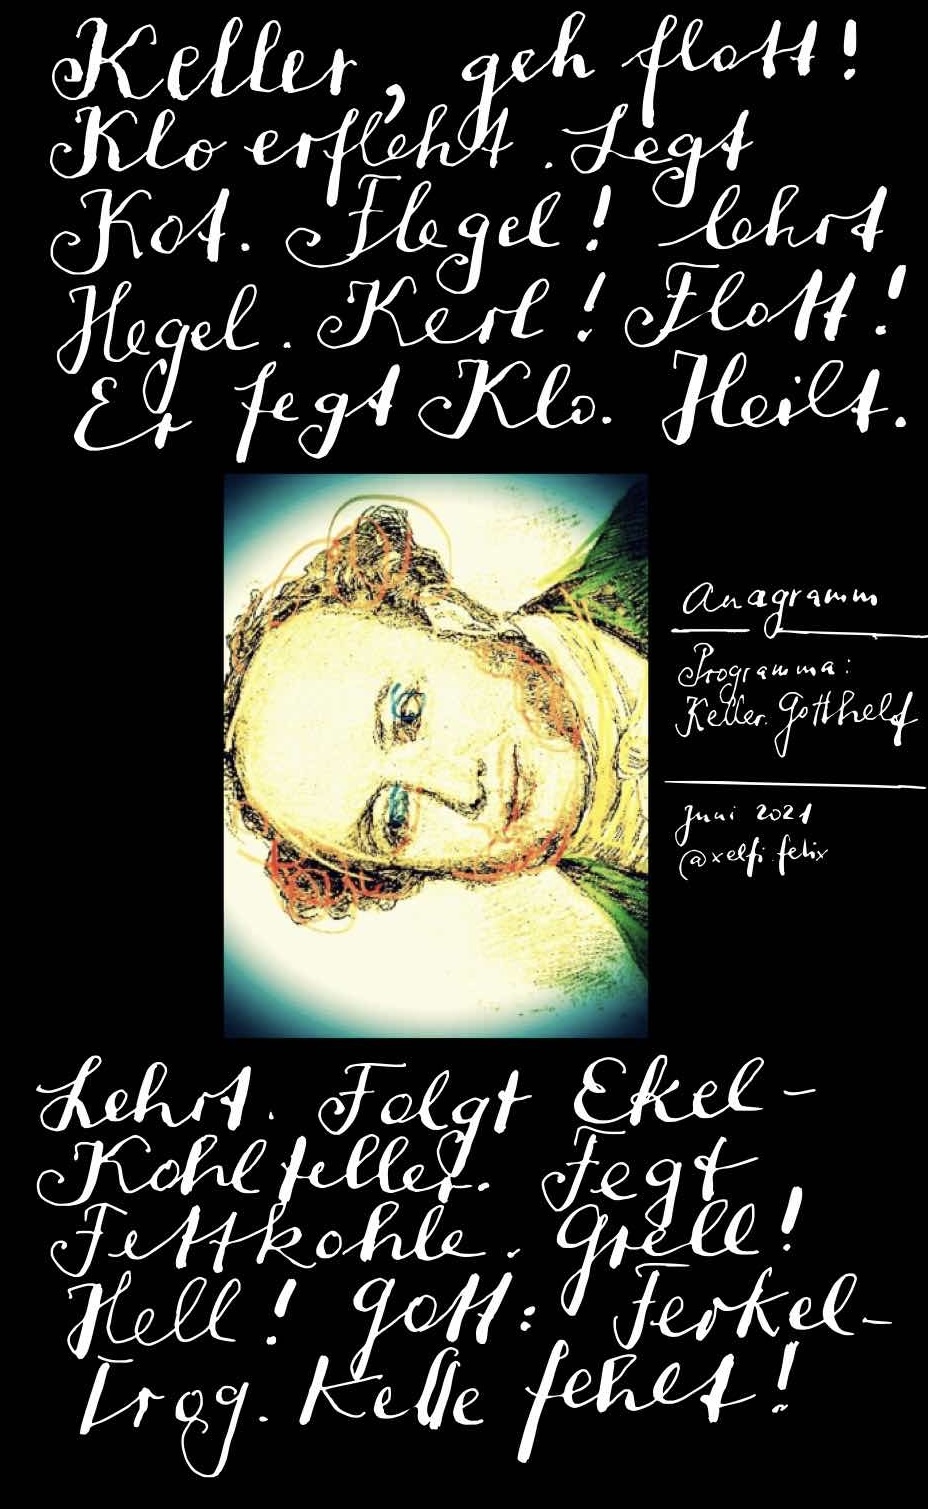 Keller, geh flott!
Klo erfleht. Legt
Kot. Flegel! lehrt
Hegel. Kerl! Flott!
Er fegt Klo. Heilt.
Anagramm
Programma:
Keller. Gotthelf
Juni 2021
@xelfi.felix
Lehrt. Folgt Ekel-
Kohlteller. Fegt
Fettkohle. Grell!
Hell! Gott: Ferkel-
Trog. Kelle fehlt!